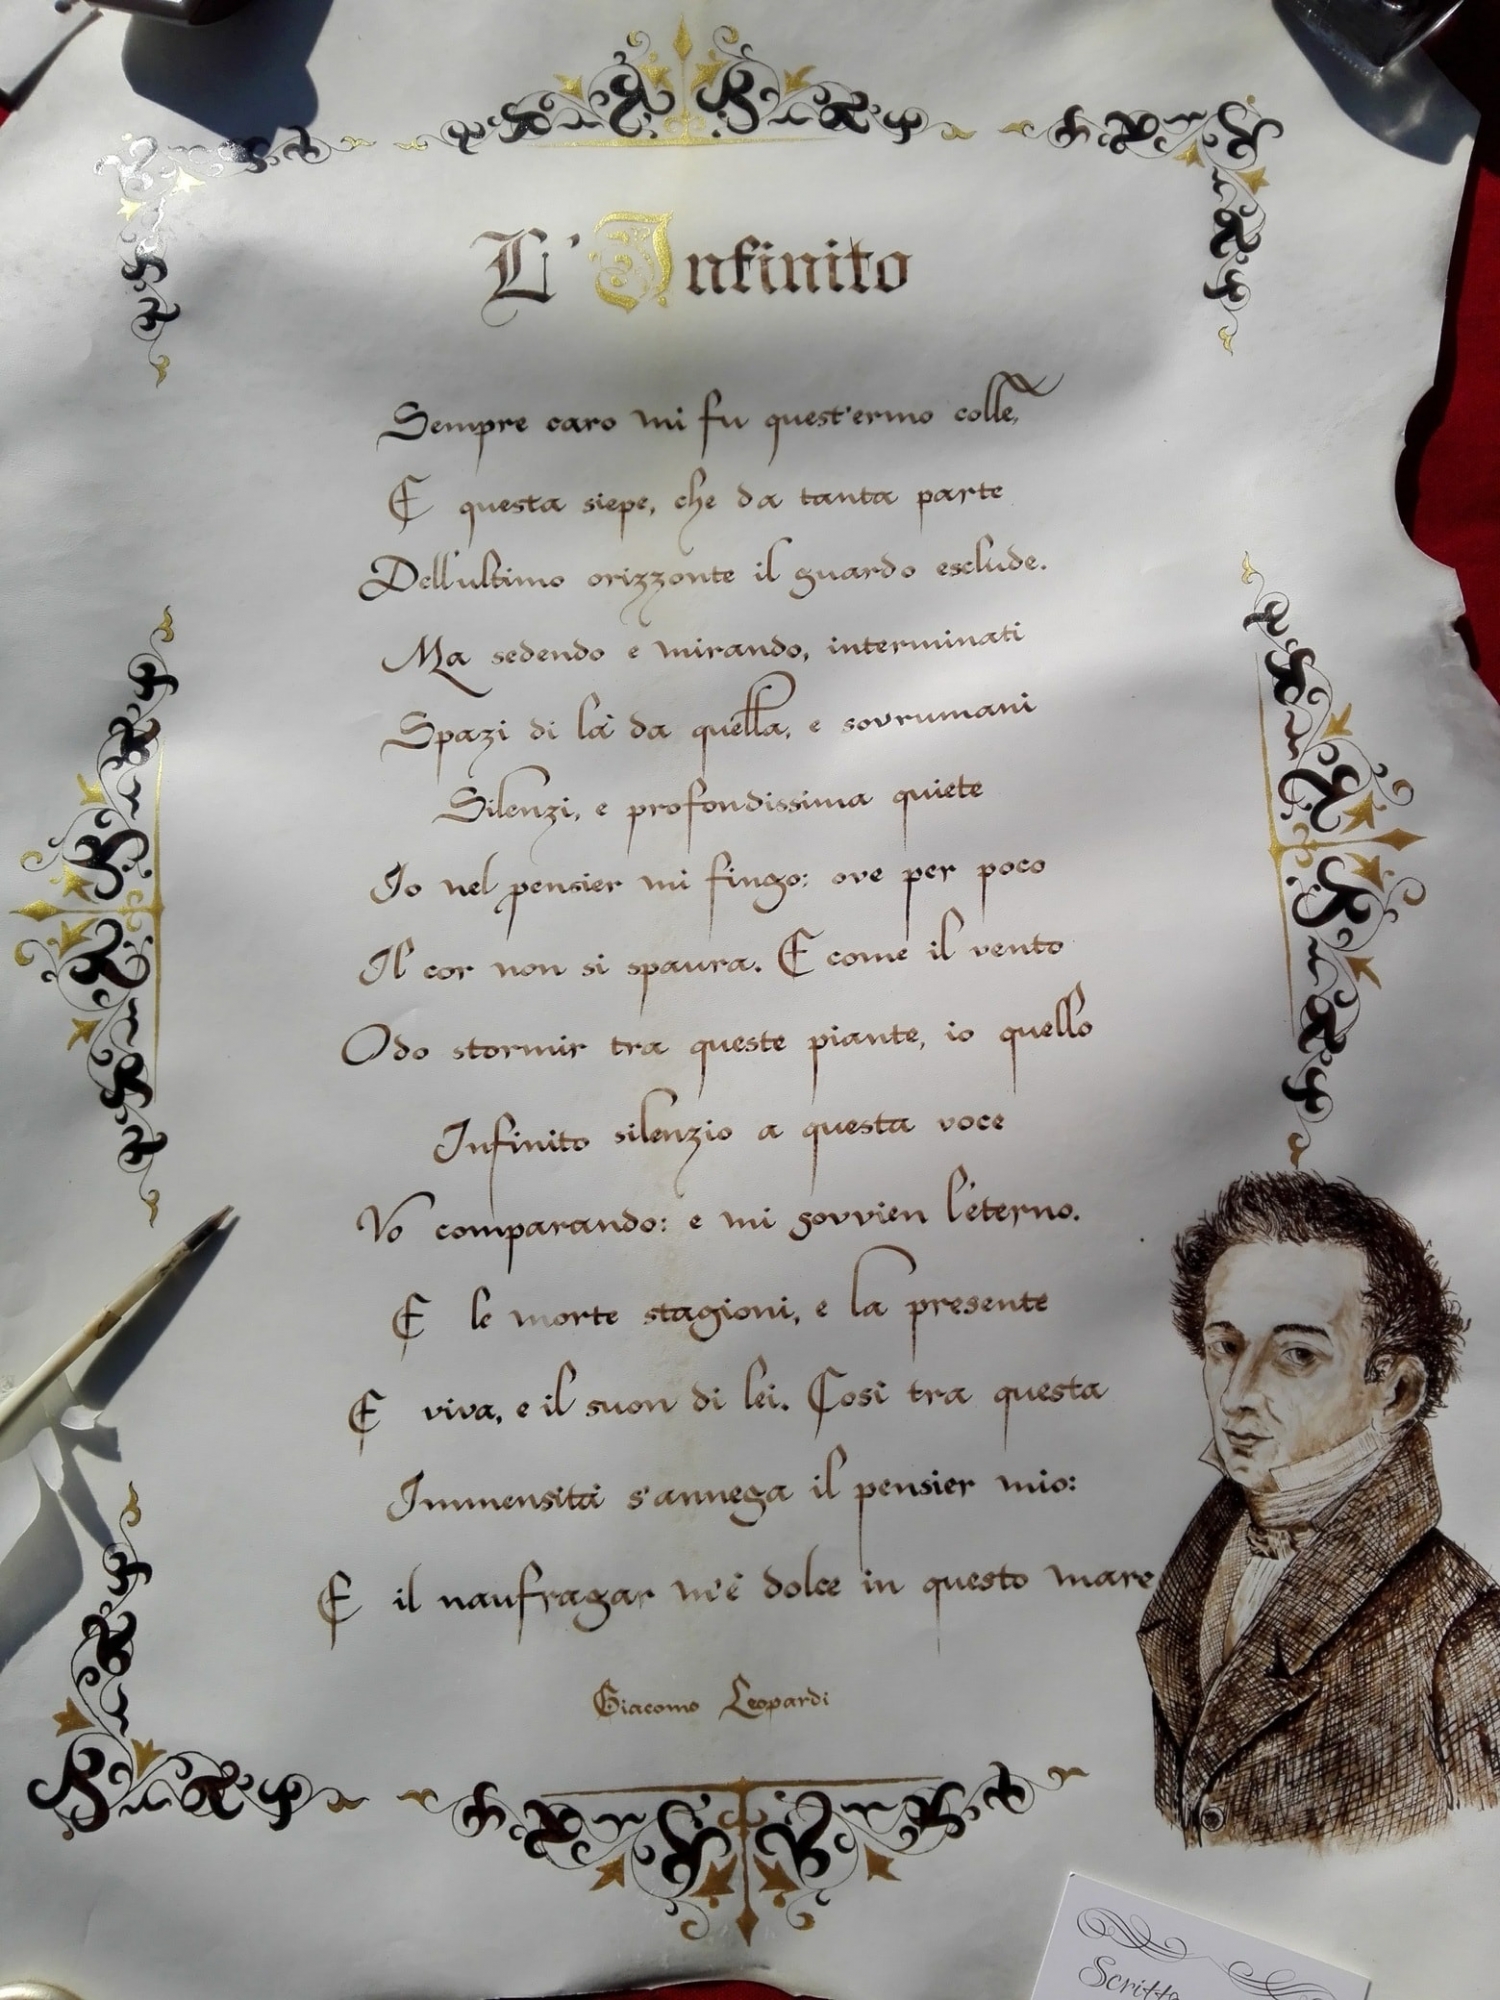 L'Infinito
Sempre caro mi fu quest'ermo colle,
E questa siepe, che da tanta parte
Dell'ultimo orizzonte il guardo esclude.
Ma sedendo e mirando, interminati
Spazi di là da quella, e sovrumani
Silenzi, e profondissima quiete
Io nel pensier mi fingo: ove per poco
Il cor non si spaura. E come il vento
Odo stormir tra queste piante, io quello
Infinito silenzio a questa voce
Vo comparando: e mi sovvien l'eterno.
E le morte stagioni, e la presente
E viva, e il suon di lei. Così tra questa
Immensità s'annega il pensier mio:
E il naufragar m'è dolce in questo mare
Giacomo Leopardi